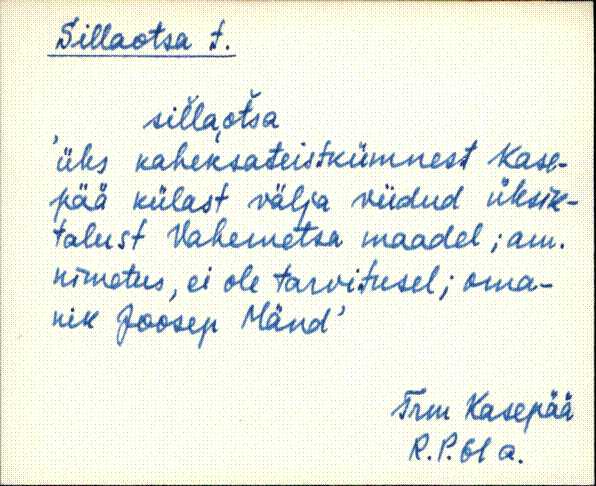 Sillaotsa t.
sil̆laot̆sa
'üks kaheksateistkümnest Kase-
pää külast välja viidud üksik-
talust Vahemetsa maadel; am.
nimetus, ei ole tarvitusel; oma-
nik Joosep Mänd'
Trm Kasepää
R.P. 61 a.